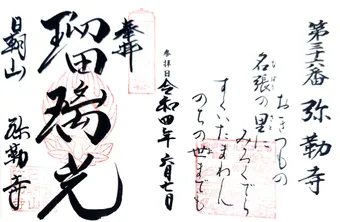 第三十六番 弥勒寺
おきつもの
名張の里に
みろくでら
すくいたまわん
のちの世までも
参拝日 令和四年 六月七日
奉拝
瑠璃光
日朝山 弥勒寺